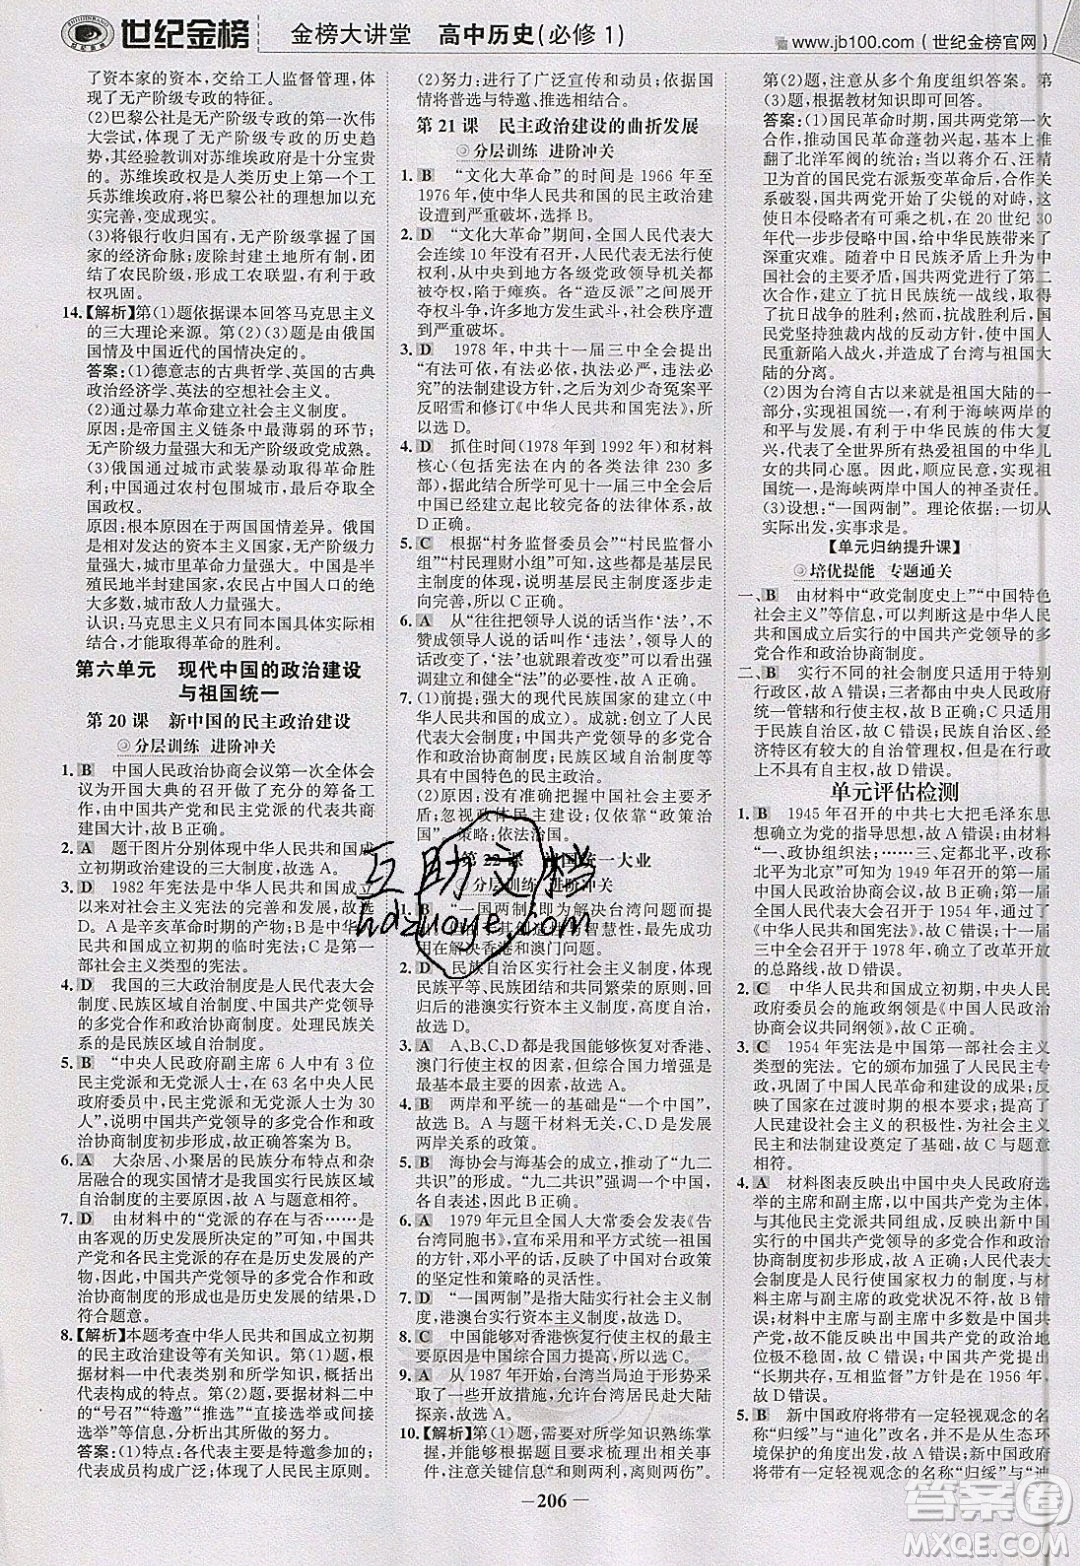 世纪金榜
金榜大讲堂 高中历史(必修1)
www.jb100.com(世纪金榜官网)
了资本家的资本,交给工人监督管理,体
现了无产阶级专政的特征。
(2)巴黎公社是无产阶级专政的第一次伟
大尝试,体现了无产阶级专政的历史趋
势,其经验教训对苏维埃政权是十分宝贵
的。苏维埃政权是人类历史上第一个工
兵苏维埃政权,将巴黎公社的理想变成了
历史现实。
(3)将银行收归国有,无产阶级掌握了国
家的经济命脉;废除封建土地所有制,团
结了农民阶级,形成工农联盟,有利于政
权巩固。
14.【解析】第(1)题依据课本回答马克思主义
的三大理论来源。第(2)(3)题是由俄国
国情及中国近代的国情决定的。
答案:(1)德意志的古典哲学、英国的古典
政治经济学、英法的空想社会主义。
(2)通过暴力革命建立社会主义制度。
原因:是帝国主义链条中最薄弱的环节;
无产阶级力量强大,无产阶级政党成熟。
(3)俄国通过城市武装暴动取得革命胜
利。中国通过农村包围城市,最后夺取全
国政权。
原因:根本原因在于两国国情差异。俄国
是后起的资本主义国家,无产阶级力量集
中于城市,城市里革命力量强大。中国是半
殖民地半封建国家,在农村中敌人统治力量
薄弱,城市敌人力量强大。
认识:马克思主义只有同本国具体实际相
结合,才能取得革命的胜利。
第六单元 现代中国的政治建设
与祖国统一
第20课 新中国的民主政治建设
分层训练 进阶冲关
1. B 中国人民政治协商会议第一次全体会
议为开国大典的召开做了充分的筹备工
作,由中国共产党和民主党派的代表共商
建国大计,故B正确。
2. A 题干图片分别体现中华人民共和国成
立初期政治建设的三大制度,故选A。
3. D 1982年宪法是中华人民共和国成立
以来对社会主义宪法的完善和发展,故选
D。A是辛亥革命时期的产物;B是中华人
民共和国成立初期的临时宪法;C是第一
部社会主义类型的宪法。
4. D 我国的三大政治制度是人民代表大会
制度、民族区域自治制度、中国共产党领导
的多党合作和政治协商制度。处理民族关
系的是民族区域自治制度。
5. B “中央人民政府副主席6人中有3位
民主党派和无党派人士,在63名中央人民
政府委员中,民主党派和无党派人士为30
人”,说明中国共产党领导的多党合作和政
治协商制度初步形成,故正确答案为B。
6. A 大杂居、小聚居的民族分布特点和杂
居融合的特殊国情才是我国实行民族区域
自治的主要原因,故A与题意相符。
7. D 由材料中“党派的存在与否……是
由客观的历史发展所规定的”可知,中国共
产党和各民主党派的存在是历史发展的产
物,因此,中国共产党领导的多党合作和政治
协商制度的形成也是历史发展的产物,故D
符合题意。
8.【解析】本题考查中华人民共和国成立初期
的民主政治建设等有关知识。第(1)题,依
据材料一中代表类别和分析,概括指出其
代表构成特点。第(2)题,依据材料二中
的“号召”“特邀”“推选”“直接选举”等
信息,分析说明其做出的努力。
答案:(1)特点:各代表都要选举或特邀;
代表成员构成广泛;体现人民民主原则。
(2)努力:进行了广泛宣传和动员;依据国
情将普选与特邀、推选相结合。
第21课 民主政治建设的曲折发展
分层训练 进阶冲关
1. B “文化大革命”的时间是1966年至
1976年,使中华人民共和国的民主政治建
设遭到严重破坏,故选择B。
2. D “文化大革命”期间,全国人民代表大
会连续10年没有召开,人民代表无法参
与国家大事;各地各级党政领导机关几乎
都陷于瘫痪。“造反派”到处煽动群众进
行斗争,许多地方发生武斗,社会秩序遭到
严重破坏。
3. D 1978年,中共十一届三中全会提出
“有法可依,有法必依,执法必严,违法必
究”的法制建设方针,之后为刘少奇冤案平
反昭雪和修订《中华人民共和国宪法》,所
以选D。
4. D 抓住时间(1978年到1992年)和材料
核心(包括宪法在内的各类法律230多
部),结合所学可见到十一届三中全会以后
中国已经建立起比较完备的法律体系,故
D正确。
5. C 根据“村务监督委员会”“村民监督小
组”“村民理财小组”可知,这些是基层民主
制度的体现,说明基层民主逐步走向制度
化,所以C正确。
6. A 从“往往把领导人说的话当作‘法’,不
赞成领导人说的话叫作‘违法’,领导人的
话改变了,‘法’也就跟着改变”可以得出健
全“法”的必要性,故选A。
7. (1)前提:强大的现代民族国家的建立(中
华人民共和国的成立)。成就:创立了人民
代表大会制度、民族区域自治制度、中国共
产党领导的多党合作和政治协商制度,发
展中国特色的民主政治。
(2)原因:没有推动持久的民主和法制建
设;忽视政府建设和市场作用;“政策治
国”。策略:依法治国。
第22课 祖国统一大业
分层训练 进阶冲关
B “一国两制”即为解决台湾问题而提
用于解决香港和澳门问题。
2. D 民族自治区实行社会主义制度,体现
民族平等、民族团结和共同繁荣的原则,回
归后的港澳实行资本主义制度,故选D。
3. A B、C、D都是我国能够恢复对香港、
澳门行使主权的原因,但综合国力增强是
最主要的,故选A。
4. B 两岸和平统一的基础是“一个中国”,
故选B。A与题干材料无关;C、D是发展
两岸关系的政策。
5. B 海协会与海基会的成立,推动了“九二
共识”的达成。“九二共识”体现了一个中
国的原则,故B正确。
6. A 1979年元旦全国人大常委会发表《告
台湾同胞书》,宣布采用和平方式统一祖国
的方针,邓小平的讲话体现中国对台政策
的坚定性和策略的灵活性。
7. D “一国两制”是指大陆实行社会主义制
度,港澳台实行资本主义制度,故选D。
8. C 中国能够对香港恢复行使主权的最主
要原因是中国综合国力提高,所以选C。
9. A 从1987年起,台湾当局迫于形势采取
了一些开放措施,允许台湾居民赴大陆
探亲,故选A。
10.【解析】第(1)题,需对所学知识熟练掌
握,并根据题目要求梳理出相关事件,
关键信息“和则两利,离则两伤”。
第(2)题,注意从多个角度组织答案。第
(3)题,根据教材知识即可回答。
答案:(1)国民革命时期,国共两党第一次
合作,推动国民革命蓬勃兴起,基本上推
翻了北洋军阀的统治;由于蒋介石、汪精
卫为首的国民党右派叛变革命,两党合作
关系破裂,国共两党形成了尖锐的对峙,
使日本侵略者有可乘之机,在20世纪30
年代一步步侵占中国领土,不断扩大侵华
战争,给中华民族带来了严重危机。随着
民族危机加深,中日民族矛盾上升为中
国社会的主要矛盾,国共两党进行了第二
次合作,建立了抗日民族统一战线,取得
了抗日战争的伟大胜利。抗战胜利后,国
民党坚持独裁内战的反动方针,使中国重
新陷入战火,最终造成了台湾与祖国大
陆的分离。
(2)因为台湾自古以来就是祖国大陆的一
部分;实现祖国统一,有利于海峡两岸的
和平与合作,有利于中华民族的伟大复
兴;实现统一是全世界所有热爱祖国的中
华儿女的共同心愿。因此,顺应民意,实
现统一,是海峡两岸中国人的神圣责任。
(3)设想:“一国两制”。理论依据:一切从
实际出发,实事求是。
【单元归纳提升课】
培优提能 专题通关
一、B 由材料中“政党制度史上”“中国特色
社会主义”等信息,可以判断这是中华人民
共和国成立后实行的中国共产党领导的多
党合作和政治协商制度。
二、B 实行不同的社会制度只适用于特别
行政区,故A错误;都是由中央人民政府
统一管辖和领导,故B正确;C只适用于民
族区域自治,故C错误;民族自治区、经
济特区有较大的自治管理权,但在行政上
不自治,故D错误。
单元评估检测
1. B 1945年召开的中共七大把毛泽东思
想确立为党的指导思想,故A错误;材料
“一、政协组织法;……三、定都北平,改
北平为北京”可知,为1949年召开的第一届
中国人民政治协商会议,故B正确;第一届
全国人民代表大会召开于1954年,通过了
《中华人民共和国宪法》,故C错误;十一届
三中全会召开于1978年,确立了改革开放
的总路线,故D错误。
2. C 中华人民共和国成立初期,中央人民
政府委员会的施政纲领是《中国人民政治
协商会议共同纲领》,故选C。
3. C 1954年宪法是中国第一部社会主义
宪法。它的颁布增强了人民民主专
政,巩固了中国人民革命和建设的成果;发
扬了人民在过渡时期的积极性,为社会主义
民主和法制建设奠定了基础,故C与题意
相符。
4. A 材料图表反映出中国中央人民政府选
举的主席和副主席,以中国共产党为主体,
由各民主党派共同组成,反映出新中国实
行的是中国共产党领导的多党合作和政治
协商制度初步形成,故A正确;中华人民共
和国是人民行使国家权力的机构,与材料
中各副主席的政党状况不符,故B错误;材
料主席与副主席中多数是中国共产党成
员,故C错误;中国共产党与民主党派实行
“长期共存,互相监督”方针是在1956年,
故D错误。
5. B 新中国政府将带有一定轻视观念的名
称“归绥”与“迪化”改名,并不是从生态
环境保护的角度出发,故A错误;新中国政府
将带有一定轻视观念的名称“归绥”与“迪
— 206 —
互助文档
hdzuoye.com
答案圈
MXQE.COM